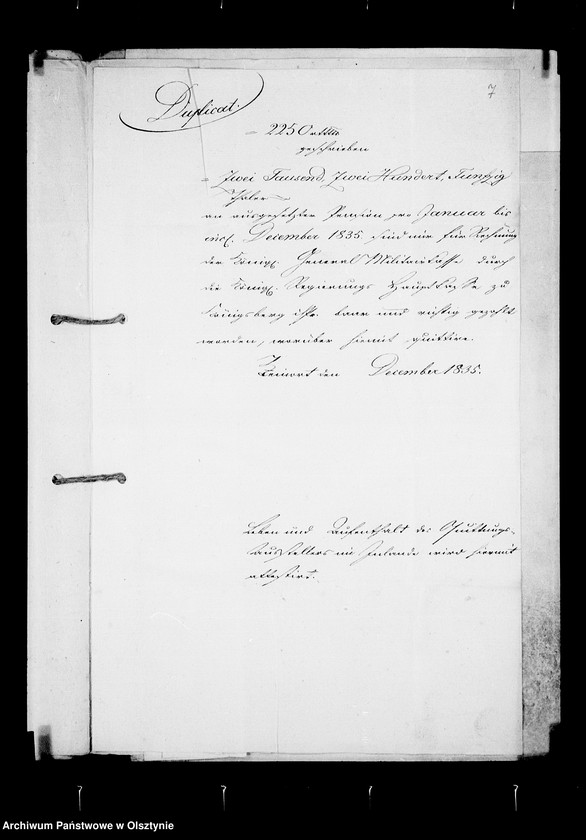 7
Duplicat.
= 2250 rt
geschrieben
= Zwei Tausend, Zwei Hundert, Funfzig
Thaler =
an ausgesetzter Pension pro Januar bis
incl. December 1835. sind mir für Rechnung
der Königl. General Militairkasse durch
die Königl. Regierungs Hauptkasse zu
Königsberg i/Pr. baar und richtig gezahlt
worden, worüber hiermit quittire.
den December 1835.
Leben und Aufenthalt des Quittungs-
Ausstellers im Inlande wird hiermit
attestirt.
Archiwum Państwowe w Olsztynie